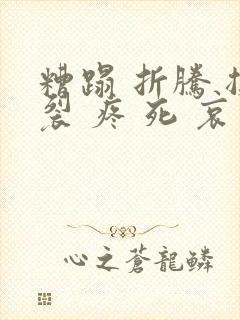 糟蹋 折騰
裂 疼 死 哀
心之蒼龍鱗